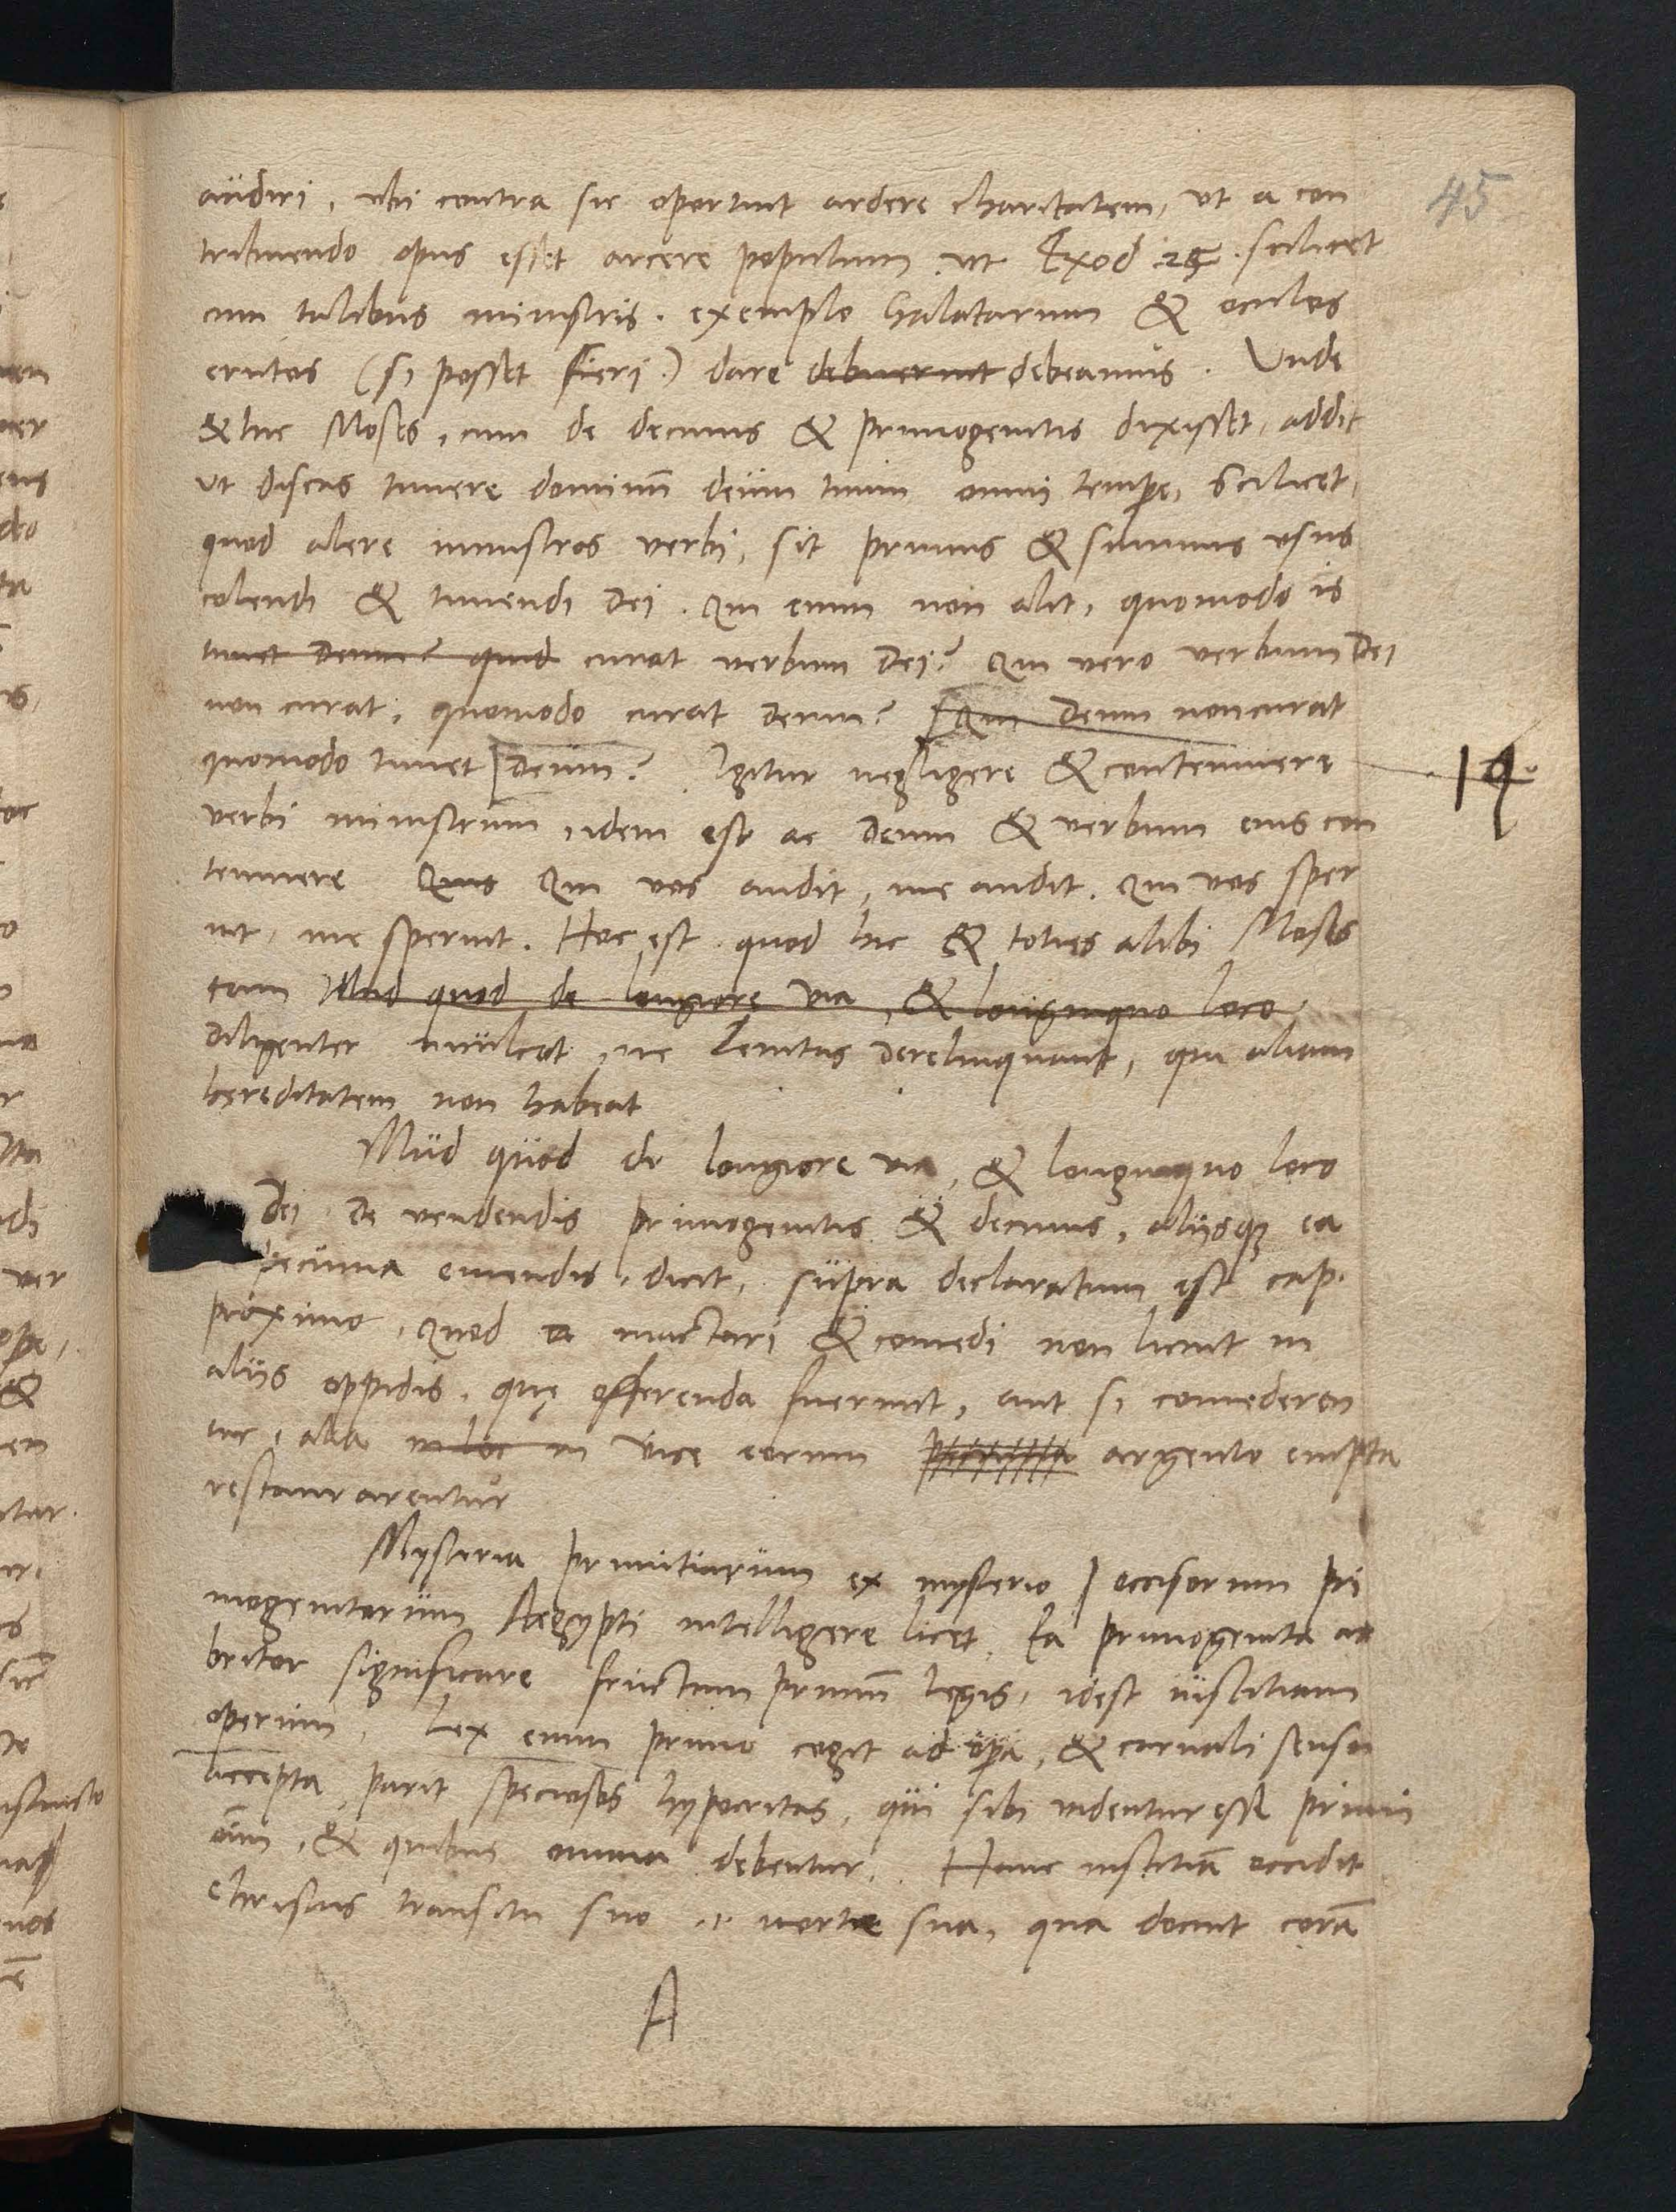 45
audiri, ubi contra sic oportuit ardere charitatem, ut a con
tribuendo opus esset arcere populum, ut Exod 25. scilicet
cum talibus ministris. exemplo Galatarum & oculos
erutos (si posset fieri.) dare debuerunt debeamus. Unde
& hic Moses, cum de decimis & primogenitis dixisset, addit
ut discas timere dominū deum tuum omni tempore, Scilicet,
quod alere ministros verbi, sit primus & summus usus
colendi & timendi Dei. Qui enim non alit, quomodo is
timet Deum? quid curat verbum Dei? Qui vero verbum Dei
non curat, quomodo curat Deum? [Qui Deum non curat
quomodo timet [Deum? Igitur negligere & contemnere
14.
verbi ministrum, idem est ac Deum & verbum eius con
temnere Quis Qui vos audit, me audit. Qui vos sper
nit, me spernit. Hoc est quod hic & toties alibi Moses
tam Illud quod de longiore via, & longinquo loco
Diligenter inculcat, ne Levitas derelinquant, qui aliam
hereditatem non habeat
Illud quod de longiore via, & longinquo loco
Dei De vendendis primogenitis & decimis, aliisque ea
pecunia emendis, dicit, supra declaratum est cap.
proximo, Quod ea mactari & comedi non licuit in
aliis oppidis, quę offerenda fuerunt, aut si comederen
tur, alia in loc in vice eorum pecunia argento empta
restaurarentur
Mysteria primitiarum ex mysterio occisorum pri
mogenitorum Aegypti intelligere licet. Ea primogenita ar
bitror significare fructum primū legis, idest iustitiam
operum. Lex enim primo cogit ad opera, & carnali sensu
accepta, parit speciosos hypocritas, qui sibi videntur esse primi
oīm, & quibus omnia debentur. Hanc iustitiā occidit
Christus transitu suo .i. morte sua, qua docuit corā
A